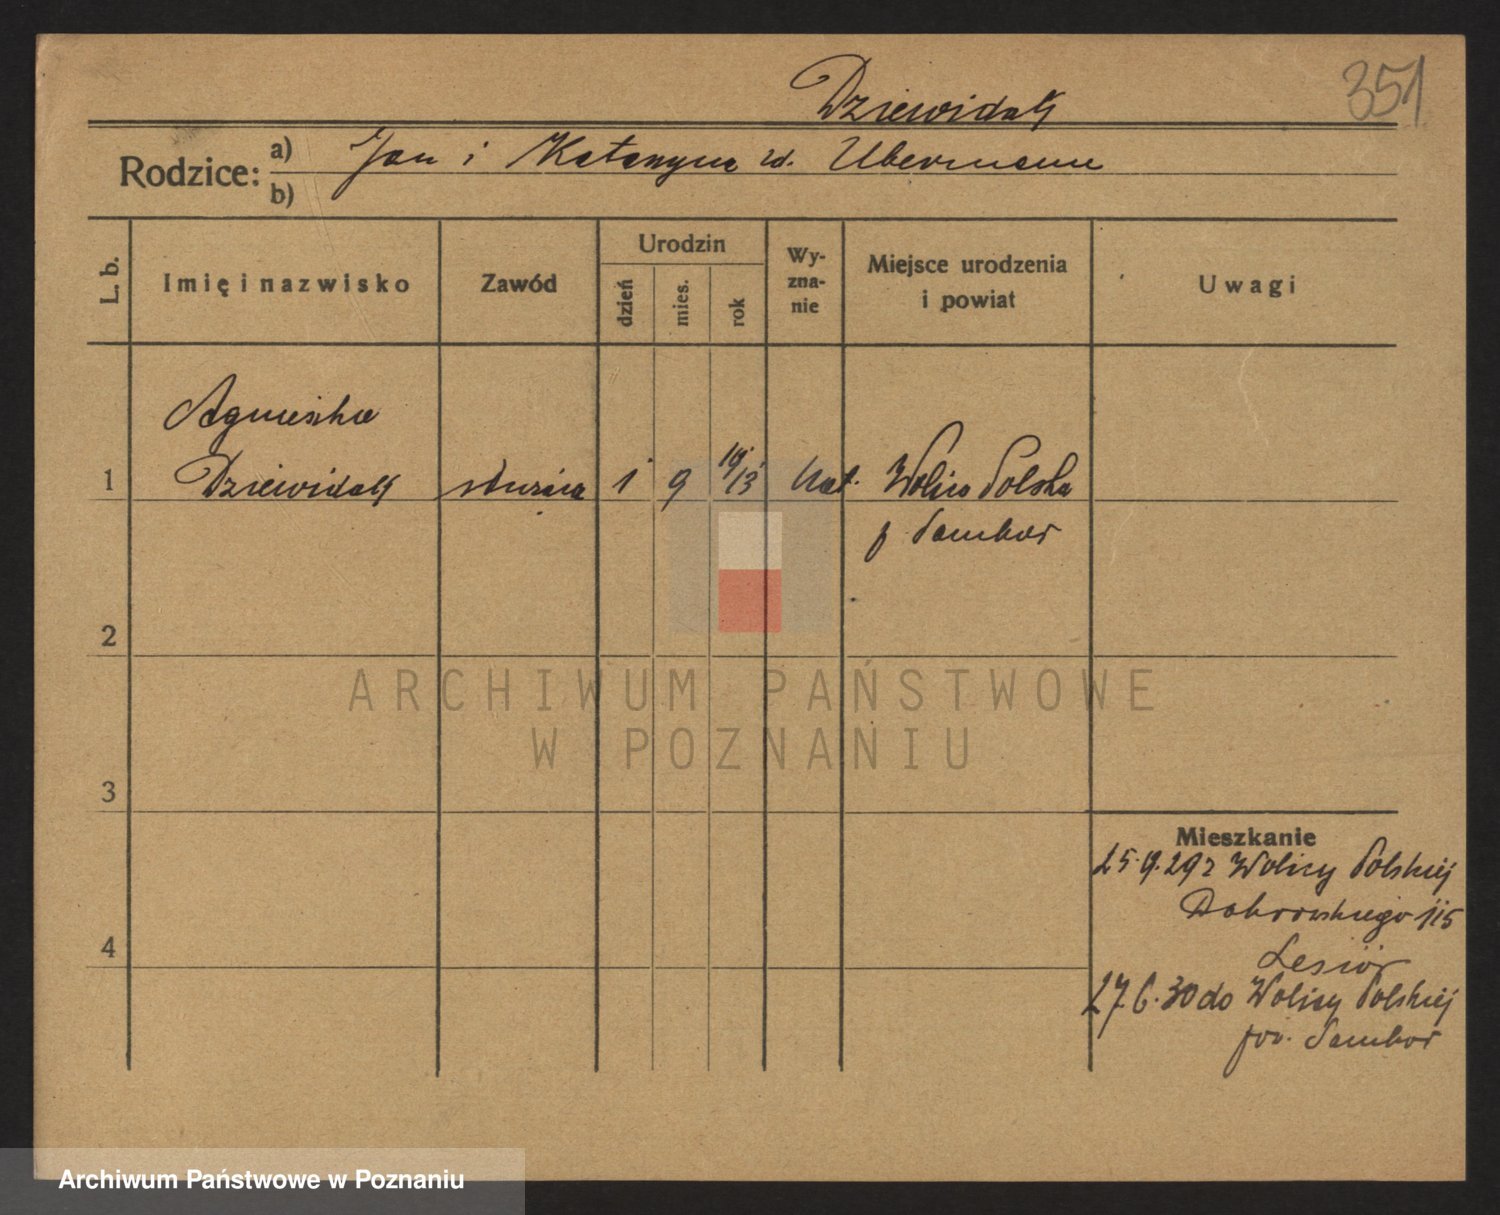 351
Dziewidalj
Rodzice: a) Jan i Katarzyna zd. Ubermann
b)
L. b. Imię i nazwisko Zawód Urodzin dzień mies. rok Wy-zna-nie Miejsce urodzenia i powiat Uwagi
Agnieszka
1 Dziewidalj służąca 1 9 19/13 kat. Wolica Polska
p. Sambor
2
3
4
Mieszkanie
25.9.29 z Wolicy Polskiej
Dąbrowskiego 115
Lesiór
27.6.30 do Wolicy Polskiej
pow. Sambor
ARCHIWUM PAŃSTWOWE
W POZNANIU
Archiwum Państwowe w Poznaniu